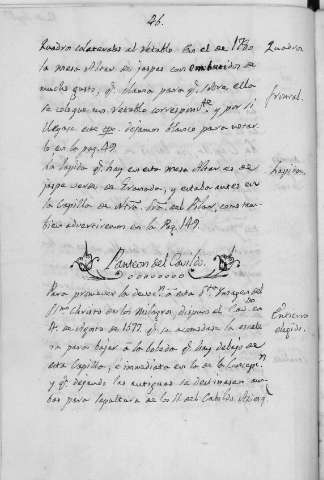 26.
Quadro colateral al retablo. En el de 1780
la mesa Altar de jaspes con embutidos de
mucho gusto, q.e clama para q.e sobre ella
se coloque un retablo correspond.te y por si
llegase este dejamos blanco para notar
lo en la pag. 49.
La lapida q.e hay en esta mesa Altar es de
jaspe verde de Granada, y estado antes en
la Capilla de Ntra. Sra. del Pilar, como tam-
bien advertiremos en la Pag. 149.
Panteon del Cavildo.
Para promover la devoc.n á esta S.ta Ymagen del
S.mo Christo de los Milagros, dispuso el Cav.do en
4. de Agosto de 1677. q.e se acomodase la escale
ra para bajar á la bobeda q.e hay debajo de
esta Capilla, é inmediata en la de la Concep.n
y q.e dejando las antiguas se destinasen am-
bas para sepultura de los SS. del Cabildo.
Quadro
frontal.
Lapida.
Entierro
elegido.